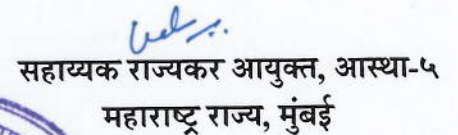 सहाय्यक राज्यकर आयुक्त, आस्था-५
महाराष्ट्र राज्य, मुंबई